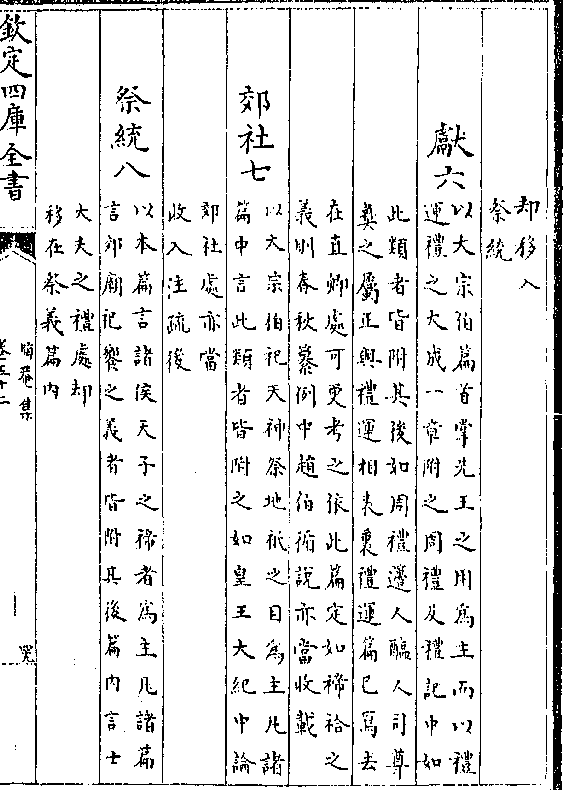 却移入
祭統
獻六
以大宗伯篇首掌先王之用為主而以禮
運禮之大成一章附之周禮及禮記中如
此類者皆附其後如周禮籩人醢人司尊
彝之屬正與禮運相表裏禮運篇已寫去
在直卿處可更考之依此篇定如禘祫之
義則春秋纂例中趙伯循說亦當收載
郊社七
以大宗伯祀天神祭地祇之目為主凡諸
篇中言此類者皆附之如皇王大紀中論
郊社處亦當
收入注疏後
祭統八
以本篇言諸侯天子之禘者為主凡諸篇
言郊廟祀饗之義者皆附其後篇内言士
大夫之禮處却
移在祭義篇内
欽定四庫全書
晦菴集
卷五十二